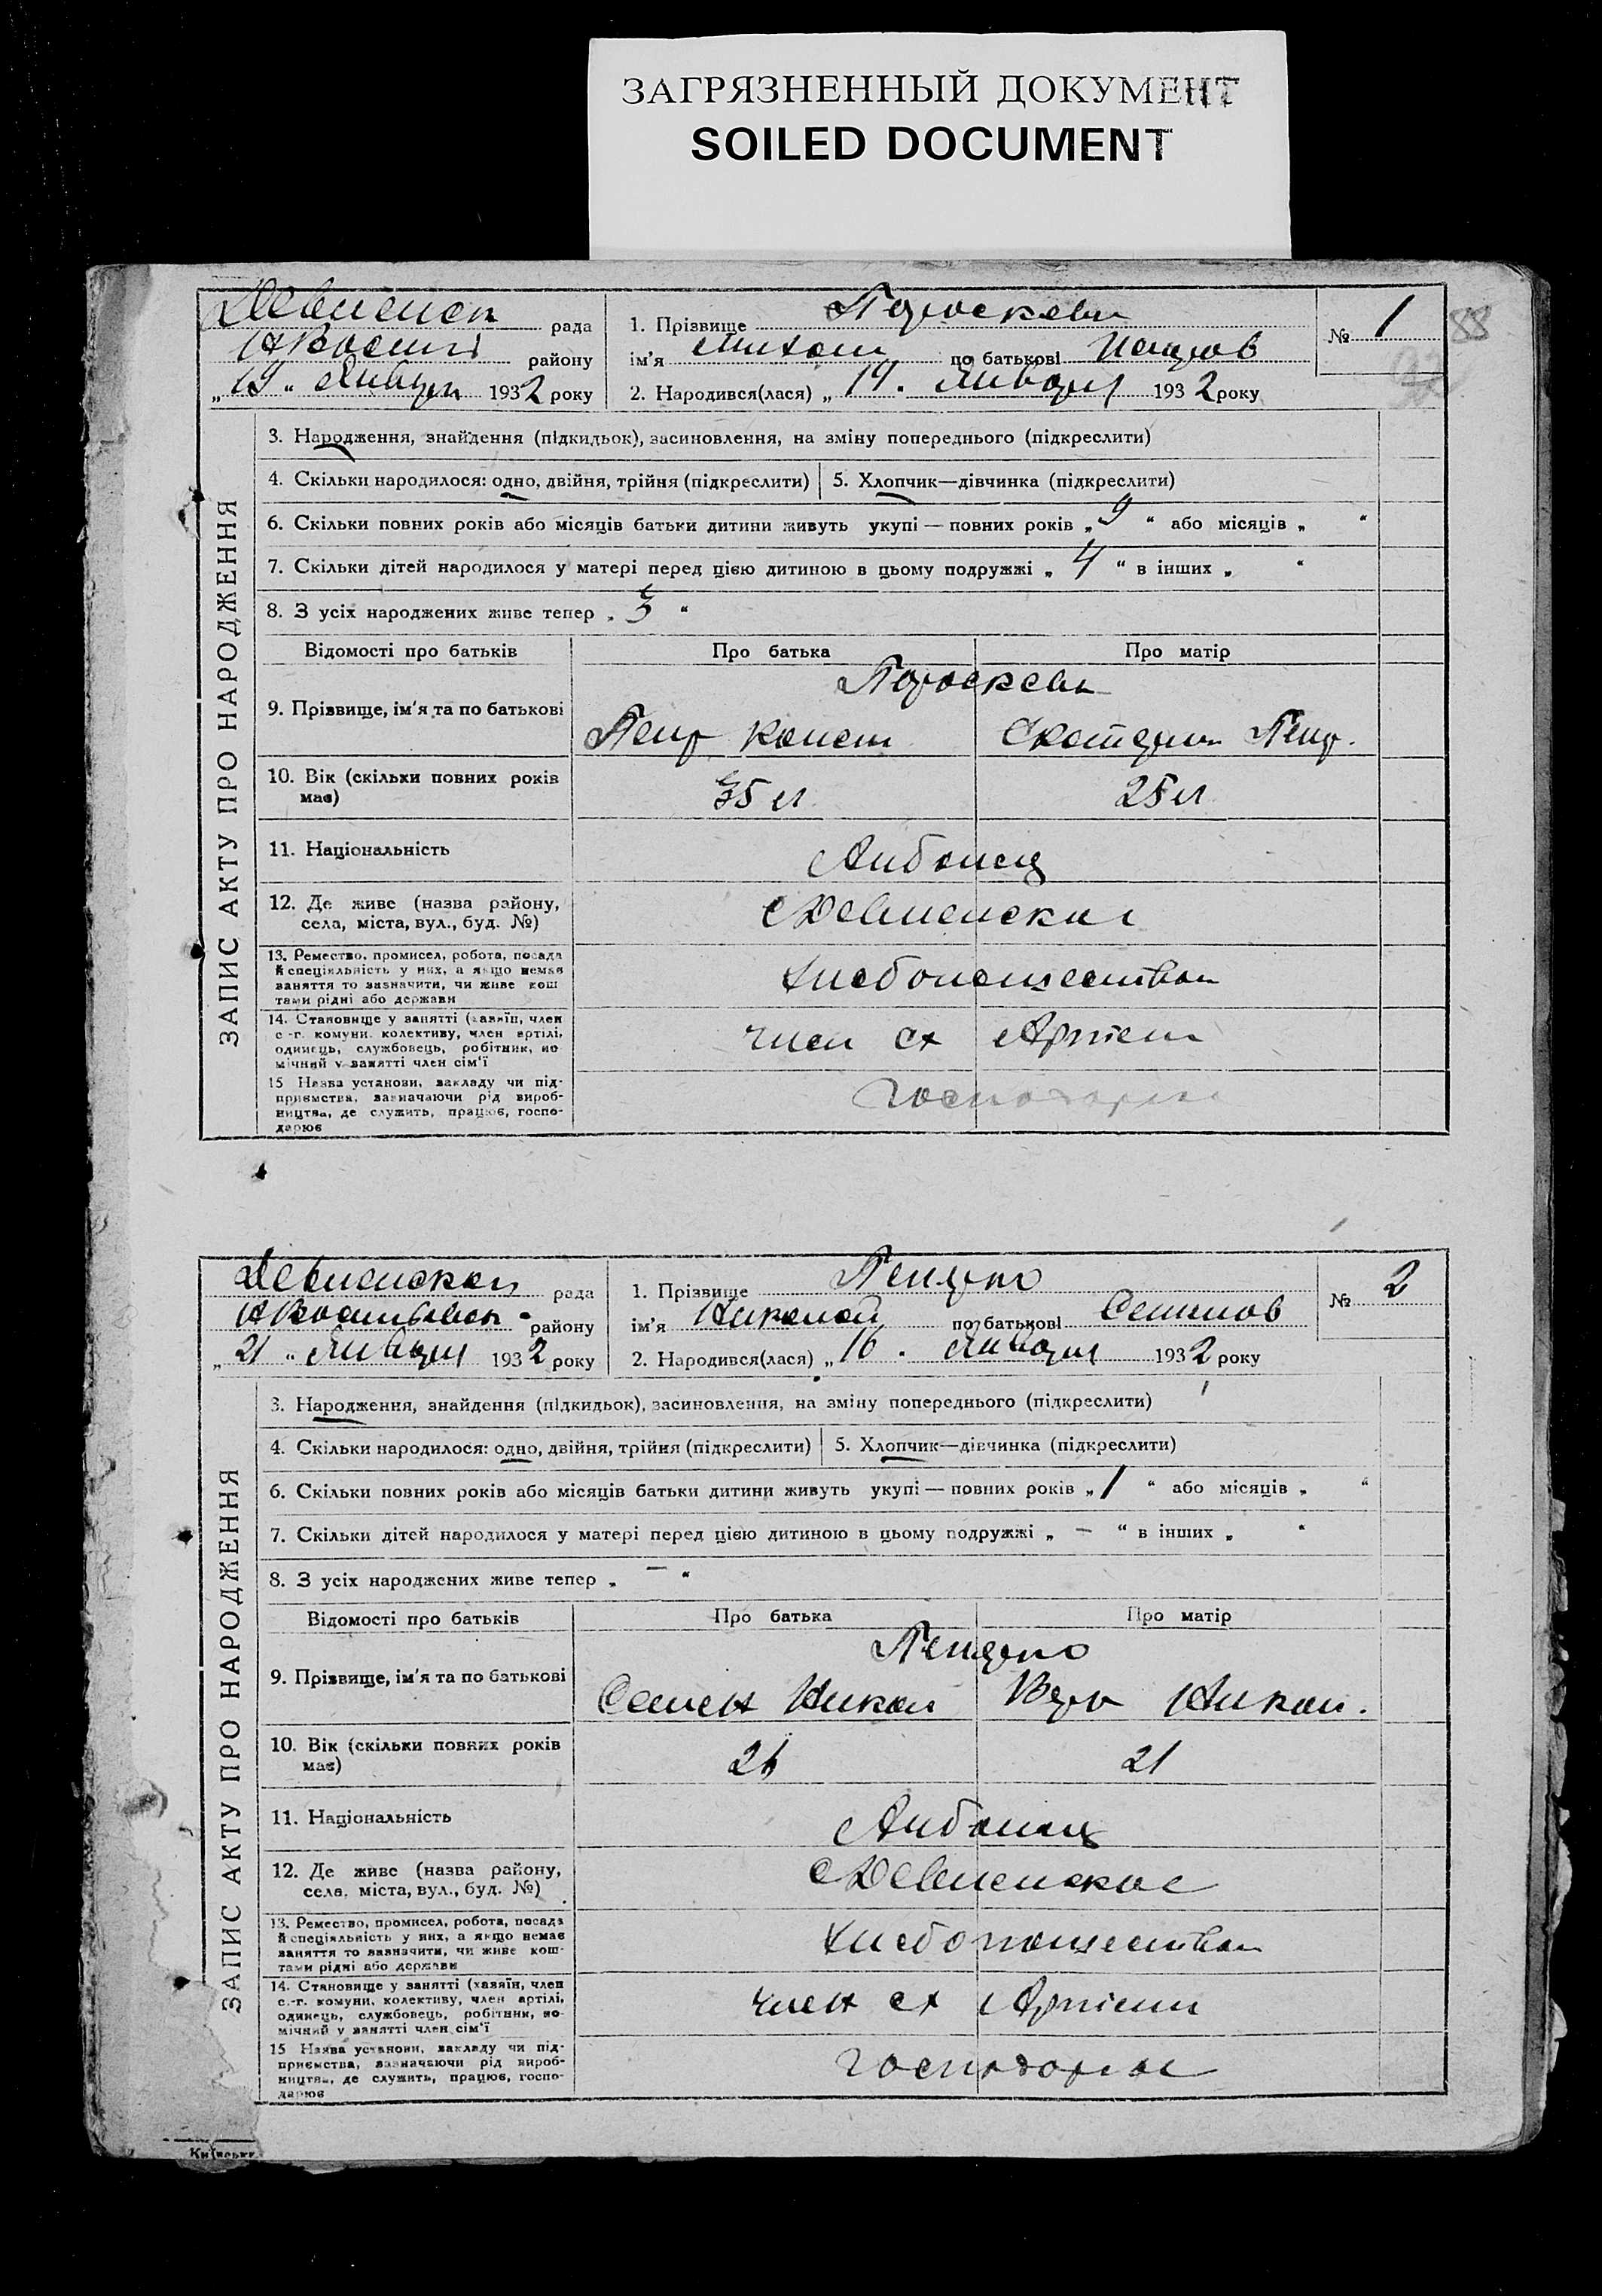 ЗАГРЯЗНЕННЫЙ ДОКУМЕНТ
SOILED DOCUMENT
рада
району
„19“ Января 1932 року
1. Прізвище
ім'я Михаил по батькові Петров
2. Народився(лася) „ 14. Января 1932 року
№ 1
88
ЗАПИС АКТУ ПРО НАРОДЖЕННЯ
3. Народження, знайдення (підкидьок), засиновлення, на зміну попереднього (підкреслити)
4. Скільки народилося: одно, двійня, трійня (підкреслити) 5. Хлопчик—дівчинка (підкреслити)
6. Скільки повних років або місяців батьки дитини живуть укупі — повних років „ 9 “ або місяців „ “
7. Скільки дітей народилося у матері перед цією дитиною в цьому подружжі „ 4 “ в інших „ “
8. З усіх народжених живе тепер „ 3 “
Відомості про батьків Про батька Про матір
9. Прізвище, ім'я та по батькові
Петр Конст Екатерин Петр.
10. Вік (скільки повних років має) 35 л 25 л
11. Національність Албанец
12. Де живе (назва району,
села, міста, вул., буд. №)
13. Ремество, промисел, робота, посада
й спеціяльність у них, а якщо немає
заняття то зазначити, чи живе кош
тами рідні або держави
Хлебопашеством
14. Становище у занятті (хазяїн, член
с.-г. комуни, колективу, член артілі,
одинець, службовець, робітник, по
мічний у занятті член сім'ї
член сх Артели
15 Назва установи, закладу чи під-
приємства, зазначаючи рід вироб-
ництва, де служить, працює, госпо-
дарює
рада
району
„ 21 “ Января 1932 року
1. Прізвище
ім'я Николай по батькові Семенов
2. Народився(лася) „ 16. Января 1932 року
№ 2
ЗАПИС АКТУ ПРО НАРОДЖЕННЯ
3. Народження, знайдення (підкидьок), засиновлення, на зміну попереднього (підкреслити)
4. Скільки народилося: одно, двійня, трійня (підкреслити) 5. Хлопчик—дівчинка (підкреслити)
6. Скільки повних років або місяців батьки дитини живуть укупі — повних років „ 1 “ або місяців „ “
7. Скільки дітей народилося у матері перед цією дитиною в цьому подружжі „ — “ в інших „ “
8. З усіх народжених живе тепер „ — “
Відомості про батьків Про батька Про матір
9. Прізвище, ім'я та по батькові
Семен Никол Вера Никол.
10. Вік (скільки повних років має) 21
11. Національність Албанец
12. Де живе (назва району,
села, міста, вул., буд. №)
13. Ремество, промисел, робота, посада
й спеціяльність у них, а якщо немає
заняття то зазначити, чи живе кош-
тами рідні або держави
Хлебопашеством
14. Становище у занятті (хазяїн, член
с.-г. комуни, колективу, член артілі,
одинець, службовець, робітник, по
мічний у занятті член сім'ї
член сх Артели
15 Назва установи, закладу чи під-
приємства, зазначаючи рід вироб-
ництва, де служить, працює, госпо-
дарює